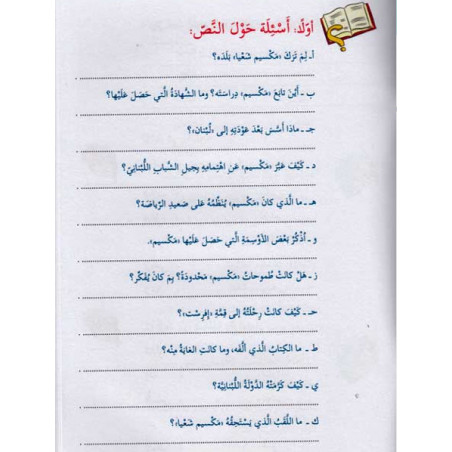 أوّلًا: أَسْئِلَة حَوْلَ النَّصّ:
أ ـ لِمَ تَرَكَ «مَكْسيم شَعْيا» بَلَدَه؟
ب ـ أَيْنَ تابَعَ «مَكْسيم» دِراسَتَه؟ وما الشَّهادَةُ الَّتي حَصَلَ عَلَيْها؟
جـ ـ ماذا أَسَّسَ بَعْدَ عَوْدَتِهِ إلى «لُبْنان»؟
د ـ كَيْفَ عَبَّرَ «مَكْسيم» عَنِ اهْتِمامِهِ بِجيلِ الشَّبابِ اللُّبْنانِيّ؟
هـ ـ ما الَّذي كانَ «مَكْسيم» يُنَظِّمُهُ عَلى صَعيدِ الرِّياضَة؟
و ـ اُذْكُرْ بَعْضَ الأَوْسِمَةِ الَّتي حَصَلَ عَلَيْها «مَكْسيم».
ز ـ هَلْ كانَتْ طُموحاتُ «مَكْسيم» مَحْدودَة؟ بِمَ كانَ يُفَكِّر؟
حـ ـ كَيْفَ كانَتْ رِحْلَتُهُ إلى قِمَّةِ «إفرِسْت»؟
ط ـ ما الكِتابُ الَّذي أَلَّفَه، وما كانَتِ الغايَةُ مِنْه؟
ي ـ كَيْفَ كَرَّمَتْهُ الدَّوْلَةُ اللُّبْنانِيَّة؟
ك ـ ما اللَّقَبُ الَّذي يَسْتَحِقُّهُ «مَكْسيم شَعْيا»؟